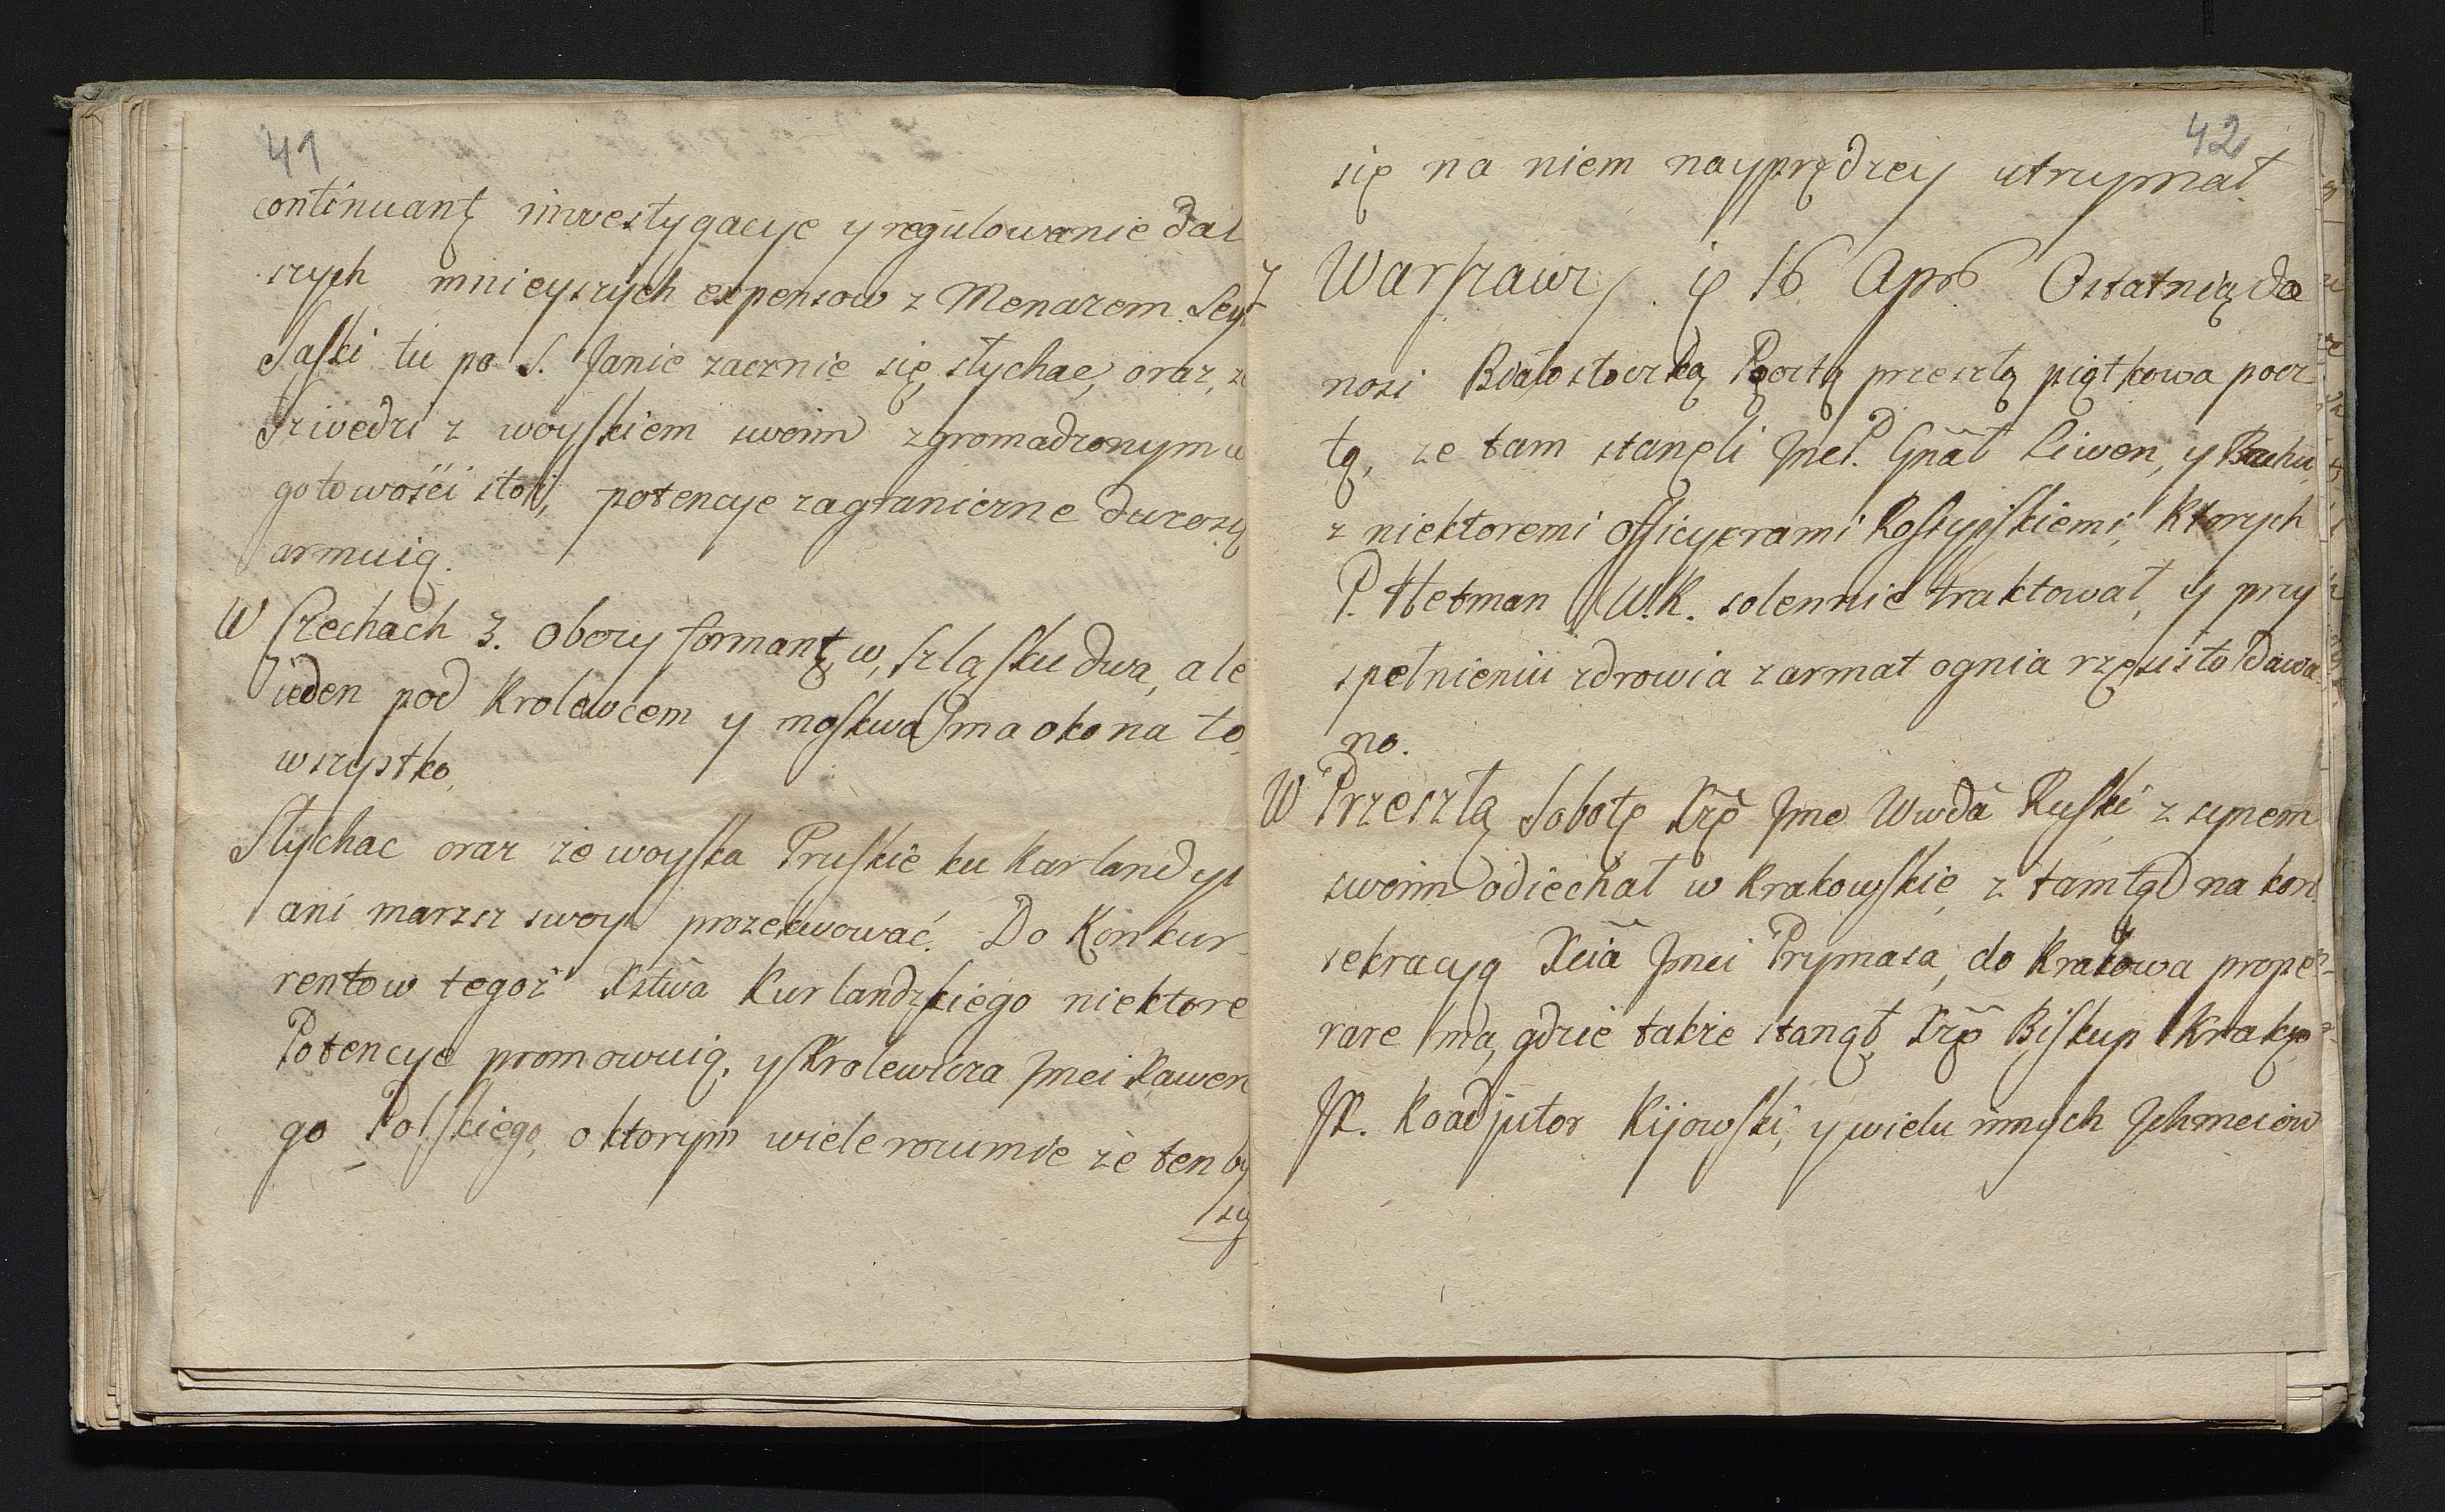 41
continuant inwestygacye y regulowanie dal
szych mnieyszych expensow z Menazem. Seym
Saski tu po S. Janie zacznie się, słychac, oraz, ze
Szwedzi z woyskiem swoim zgromadzonym w
gotowości stoi, potencye zagraniczne duzo się
armuią.
W Czechach 3. obozy formant, w, Szląsku dwa, ale
ieden pod Krolewcem y moskwa ma oko na to
wszystko.
Słychac oraz ze woyska Pruskie ku Kurlandyi
ani marzsz swoy prozekwować. Do Konkur-
rentow tegoż Xstwa Kurlandzkiego niektore
Potencye promowuią, y Krolewicza Jmci Xawere
go Polskiego, o ktorym wiele rozumie że ten by
się
42
się na niem nayprędzey utrzymał.
Z Warszawy. 16 Apr. Ostatnią do
nosi Białostocką Pocztą przeszłą piątkowa pocz
tą, ze tam stanęli Jmci P. Gnał Liwen, y
z niektoremi officyerami Rossyiskiemi, Ktorych
P. Hetman W. K. solennie traktował, y przy
spełnieniu zdrowia z armat ognia rzęsisto dawa
no.
W Przeszłą Sobotę Xże Jmc Wwda Ruski z synem
swoim odiechał w Krakowskie, z tamtąd na kon
sekracyą Xcia Jmci Prymasa, do Krakowa prope
rare ma, gdzie takze stanął Xże Biskup Krako
JX. Koadjutor Kijowski, y wielu innych Jchmciow